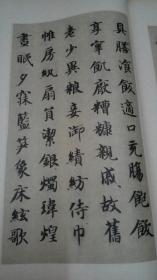 具膳飡飯適口充腸飽飫
享宰飢猒糟糠親戚故舊
老少異粮妾御績紡侍巾
帷房紈扇員潔銀燭煒煌
晝眠夕寐藍笋象床絃歌